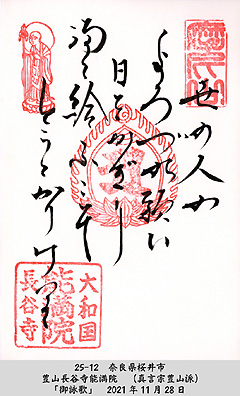 世の人の
よろづの願ひ
日をかぎり
満て給ふこそ
たうとかりけれ
大和国
能満院
長谷寺
25-12 奈良県桜井市
豊山長谷寺能満院 (真言宗豊山派)
「御詠歌」 2021年11月28日